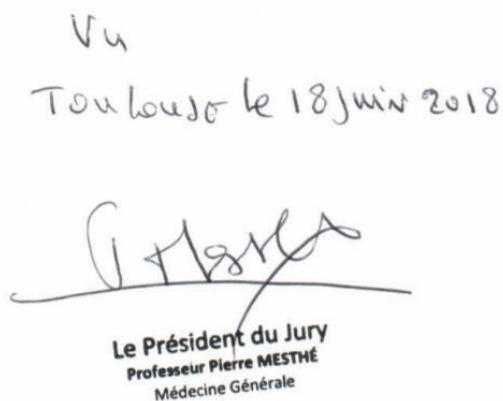 Vu
Toulouse le 18 juin 2018
P Mesthé
Le Président du Jury
Professeur Pierre MESTHÉ
Médecine Générale